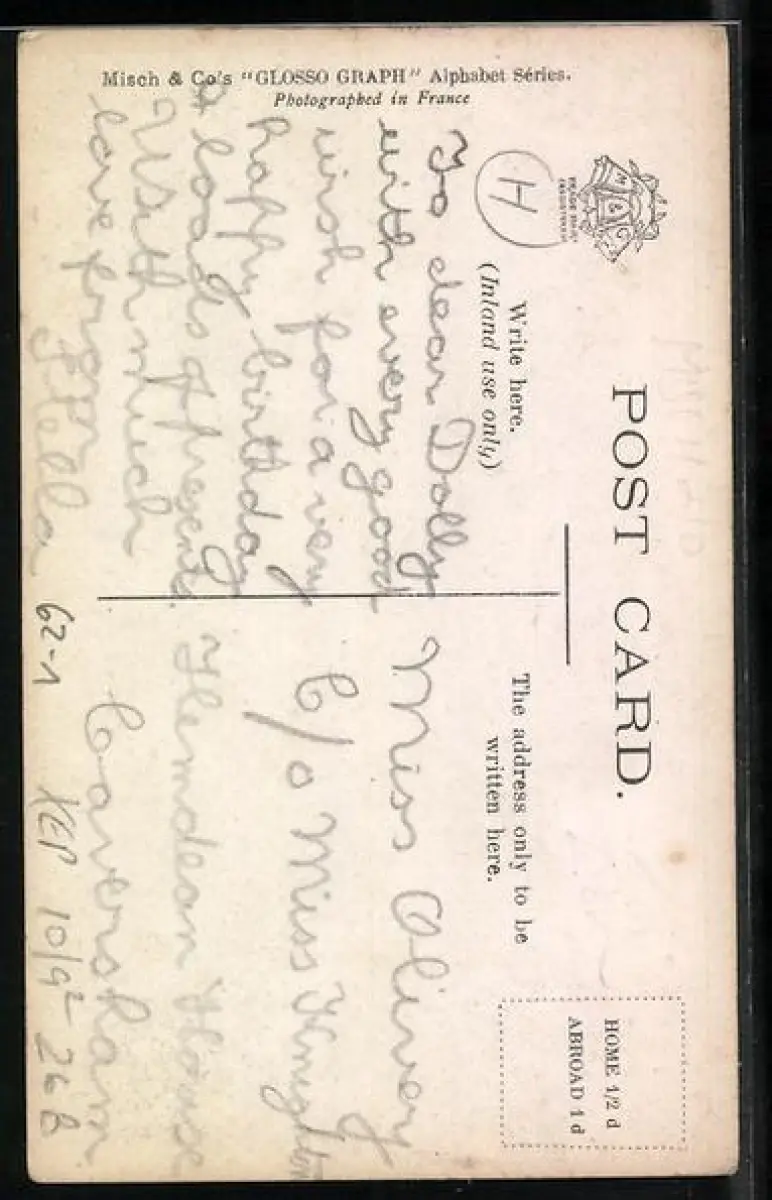 Misch & Co's "GLOSSO GRAPH" Alphabet Séries.
Photographed in France
POST CARD.
Write here.
(Inland use only)
The address only to be
written here.
HOME 1/2 d
ABROAD 1 d
M & C
H
To dear Dolly
with every good
wish for a very
happy birthday
& loads of presents.
With much
love from
Stella
Miss Oliver
C/o Miss Knighton
Hemdean House
Caversham
62-1